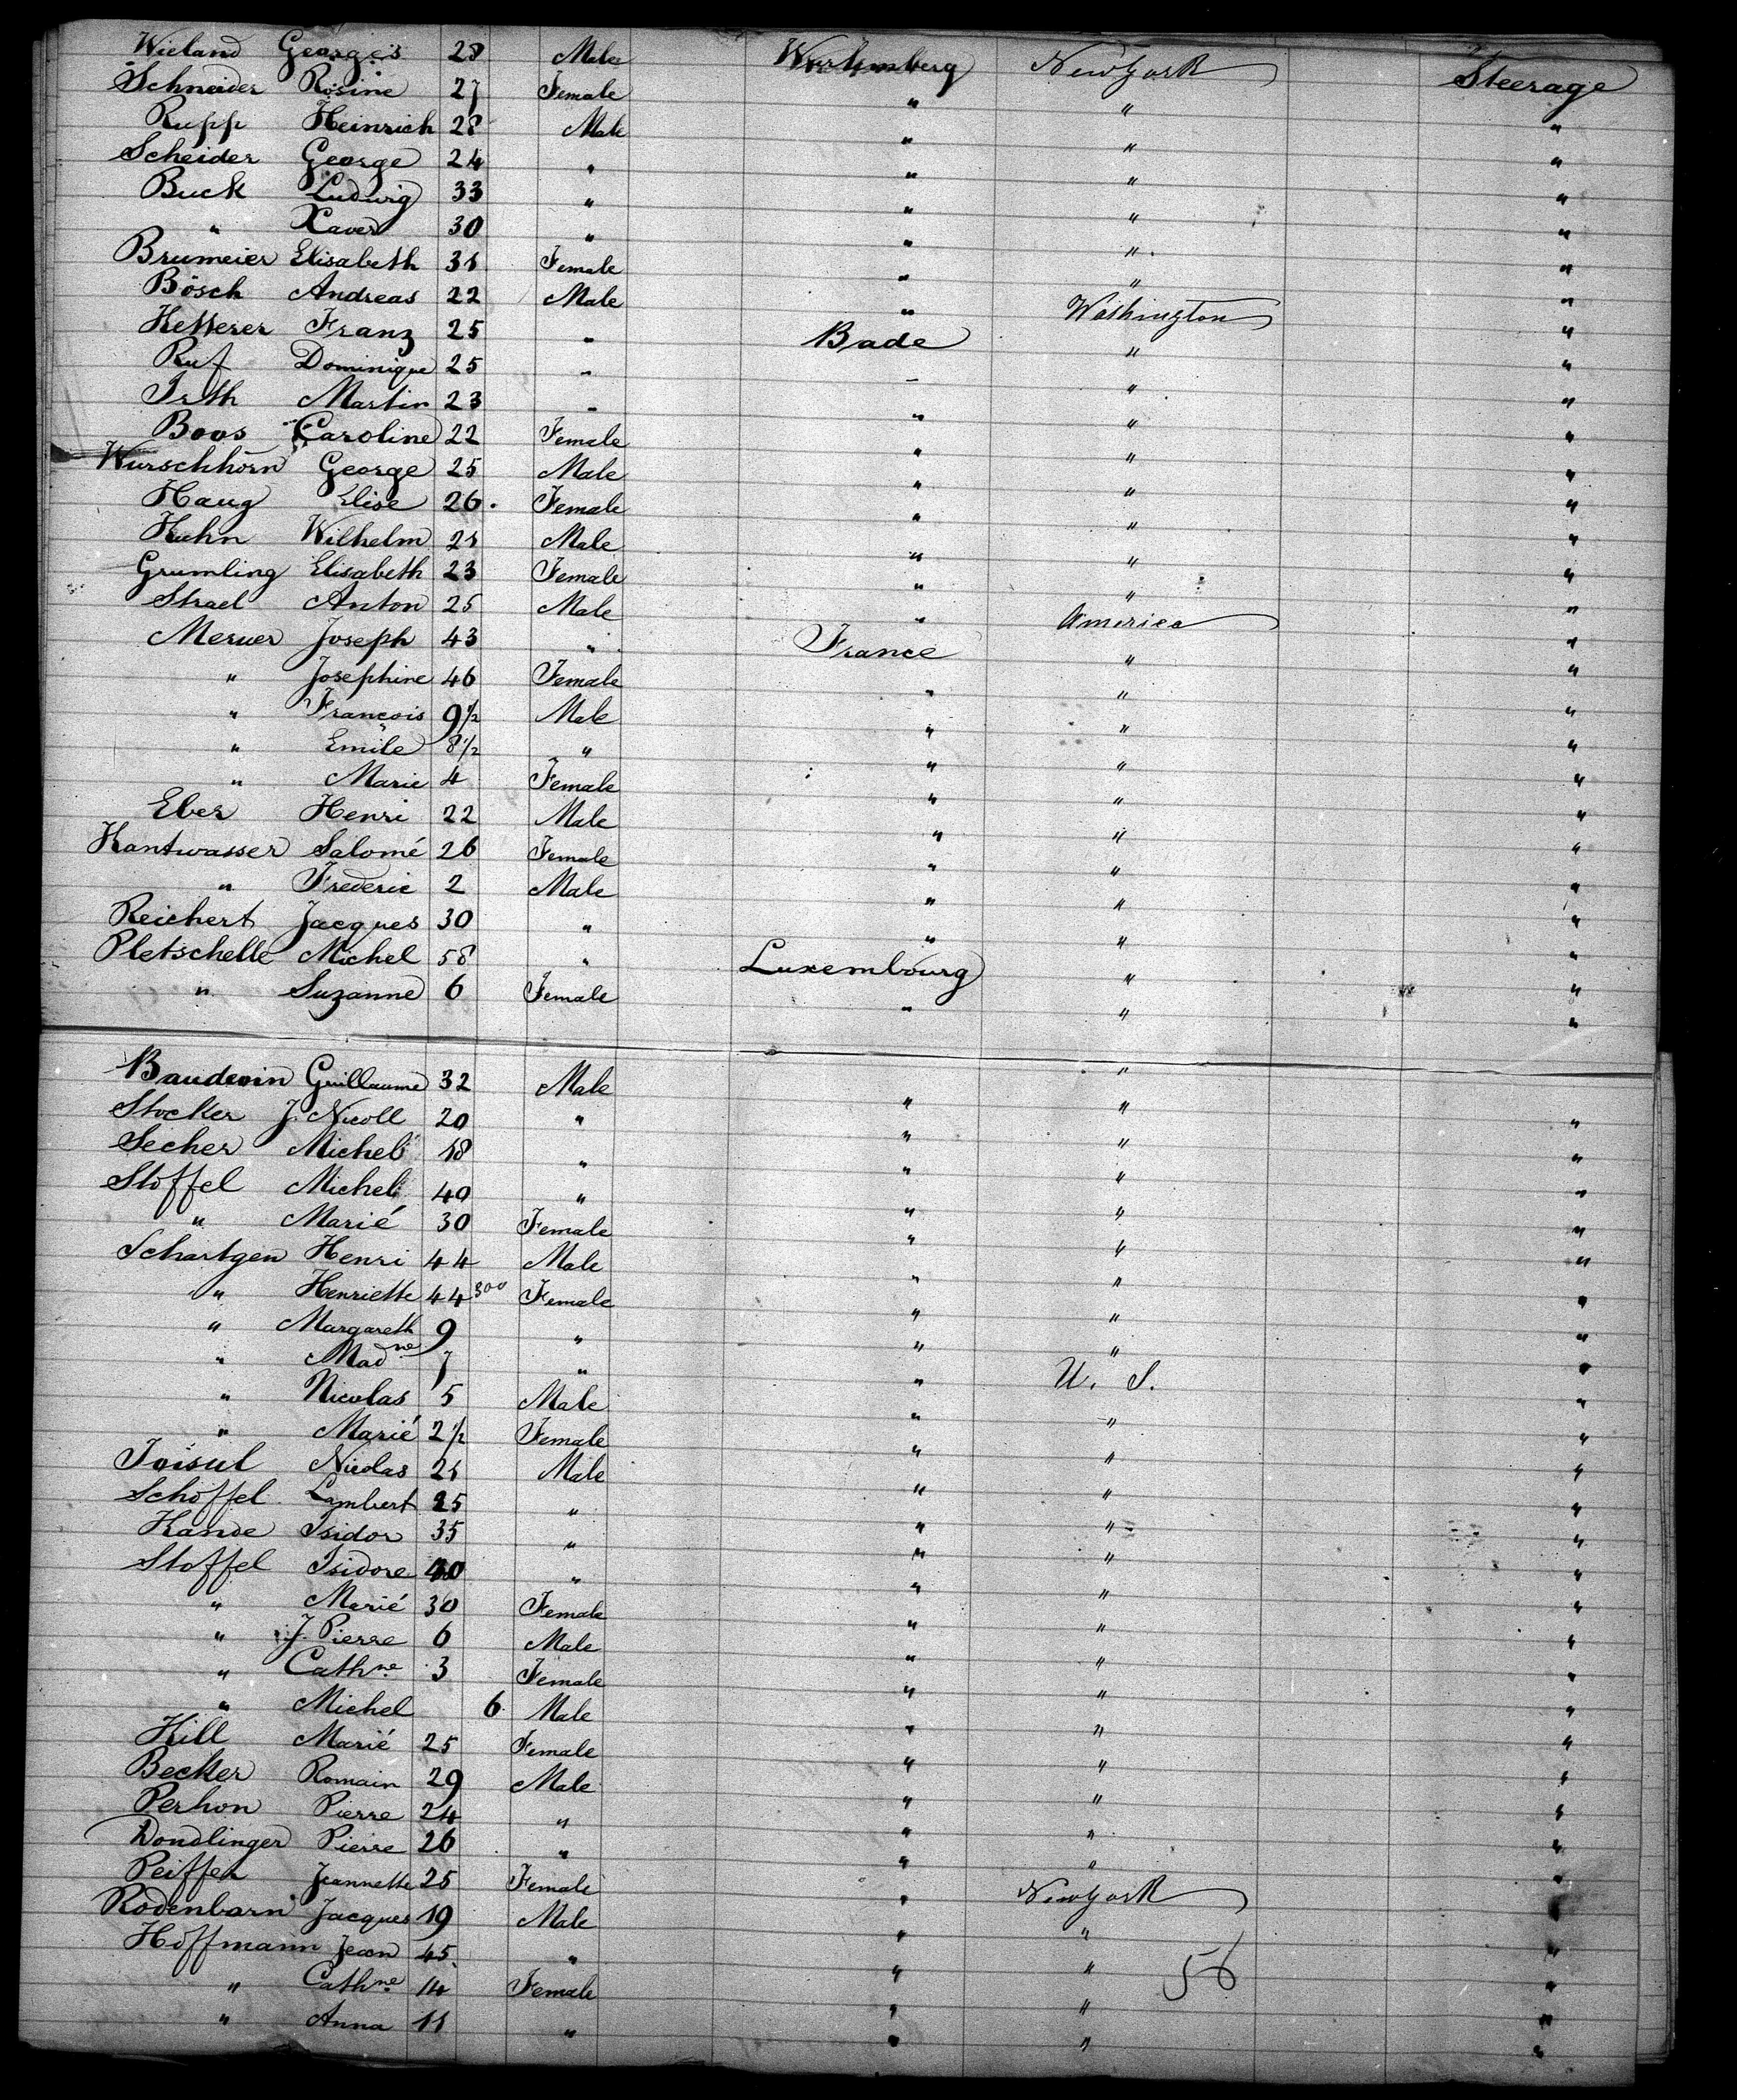 Wieland Georges 28 Male Wurtemberg New York Steerage
Schneider Rosine 27 Female " " "
Rupp Heinrich 28 Male " " "
Scheider George 24 " " " "
Buck Ludwig 33 " " " "
" Xaver 30 " " " "
Brumeier Elisabeth 31 Female " " "
Bösch Andreas 22 Male " Washington "
Ketterer Franz 25 " Bade " "
Ruf Dominique 25 " " " "
Irth Martin 23 " " " "
Boos Caroline 22 Female " " "
Wurschhorn George 25 Male " " "
Haug Elise 26 Female " " "
Kuhn Wilhelm 21 Male " " "
Grumling Elisabeth 23 Female " " "
Strael Anton 25 Male " America "
Meruer Joseph 43 " France " "
" Josephine 46 Female " " "
" François 9½ Male " " "
" Emile 8½ " " " "
" Marie 4 Female " " "
Eber Henri 22 Male " " "
Kantwasser Salomé 26 Female " " "
" Frederic 2 Male " " "
Reichert Jacques 30 " " " "
Pletschelle Michel 58 " Luxembourg " "
" Suzanne 6 Female " " "
Baudevin Guillaume 32 Male " " "
Stocker J. Nicoll 20 " " " "
Secher Michel 18 " " " "
Stoffel Michel 40 " " " "
" Marié 30 Female " " "
Schartgen Henri 44 Male " " "
" Henriette 44 300 Female " " "
" Margareth 9 " " " "
" Mad ne 7 " " U. S. "
" Nicolas 5 Male " " "
" Marié 2½ Female " " "
Toisul Nicolas 21 Male " " "
Schoffel Lambert 25 " " " "
Kande Isidor 35 " " " "
Stoffel Isidore 40 " " " "
" Marié 30 Female " " "
" J. Pierre 6 Male " " "
" Cathne 3 Female " " "
" Michel 6 Male " " "
Hill Marié 25 Female " " "
Becker Romain 29 Male " " "
Perhon Pierre 24 " " " "
Dondlinger Pierre 26 " " " "
Peiffer Jeannette 25 Female " New York "
Rodenbarn Jacques 19 Male " " "
Hoffmann Jean 45 " " " 56 "
" Cathne 14 Female " " "
" Anna 11 " " " "